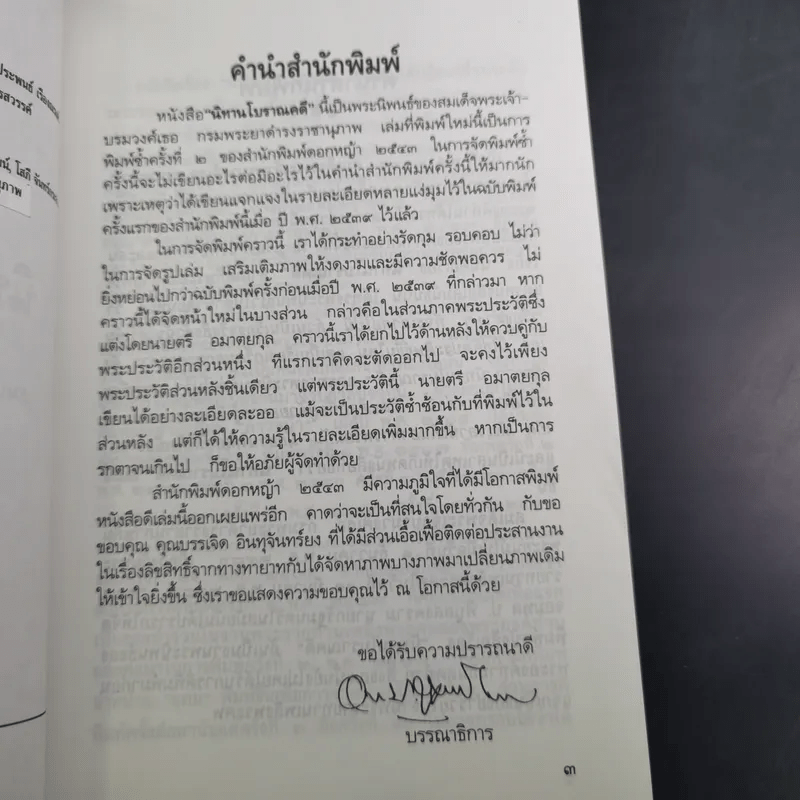 ประพนธ์ เรือง
รสวรรค์
คำนำสำนักพิมพ์
หนังสือ "นิทานโบราณคดี" นี้เป็นพระนิพนธ์ของสมเด็จพระเจ้า-
บรมวงศ์เธอ กรมพระยาดำรงราชานุภาพ เล่มที่พิมพ์ใหม่นี้เป็นการ
พิมพ์ซ้ำครั้งที่ ๒ ของสำนักพิมพ์ดอกหญ้า ๒๕๔๓ ในการจัดพิมพ์ซ้ำ
ครั้งนี้จะไม่เขียนอะไรต่อมิอะไรไว้ในคำนำสำนักพิมพ์ครั้งนี้ให้มากนัก
เพราะเหตุว่าได้เขียนแจกแจงในรายละเอียดหลายแง่มุมไว้ในฉบับพิมพ์
ครั้งแรกของสำนักพิมพ์นี้เมื่อ ปี พ.ศ. ๒๕๓๙ ไว้แล้ว
ในการจัดพิมพ์คราวนี้ เราได้กระทำอย่างรัดกุม รอบคอบ ไม่ว่า
ในการจัดรูปเล่ม เสริมเติมภาพให้งดงามและมีความชัดพอควร ไม่
ยิ่งหย่อนไปกว่าฉบับพิมพ์ครั้งก่อนเมื่อปี พ.ศ. ๒๕๓๙ ที่กล่าวมา หาก
คราวนี้ได้จัดหน้าใหม่ในบางส่วน กล่าวคือในส่วนภาคพระประวัติซึ่ง
แต่งโดยนายตรี อมาตยกุล คราวนี้เราได้ยกไปไว้ด้านหลังให้ควบคู่กับ
พระประวัติอีกส่วนหนึ่ง ทีแรกเราคิดจะตัดออกไป จะคงไว้เพียง
พระประวัติส่วนหลังชิ้นเดียว แต่พระประวัตินี้ นายตรี อมาตยกุล
เขียนได้อย่างละเอียดละออ แม้จะเป็นประวัติซ้ำซ้อนกับที่พิมพ์ไว้ใน
ส่วนหลัง แต่ก็ได้ให้ความรู้ในรายละเอียดเพิ่มมากขึ้น หากเป็นการ
รกตาจนเกินไป ก็ขอให้อภัยผู้จัดทำด้วย
สำนักพิมพ์ดอกหญ้า ๒๕๔๓ มีความภูมิใจที่ได้มีโอกาสพิมพ์
หนังสือดีเล่มนี้ออกเผยแพร่อีก คาดว่าจะเป็นที่สนใจโดยทั่วกัน กับขอ
ขอบคุณ คุณบรรเจิด อินทุจันทร์ยง ที่ได้มีส่วนเอื้อเฟื้อติดต่อประสานงาน
ในเรื่องลิขสิทธิ์จากทางทายาทกับได้จัดหาภาพบางภาพมาเปลี่ยนภาพเดิม
ให้เข้าใจยิ่งขึ้น ซึ่งเราขอแสดงความขอบคุณไว้ ณ โอกาสนี้ด้วย
ขอได้รับความปรารถนาดี
บรรณาธิการ
๓